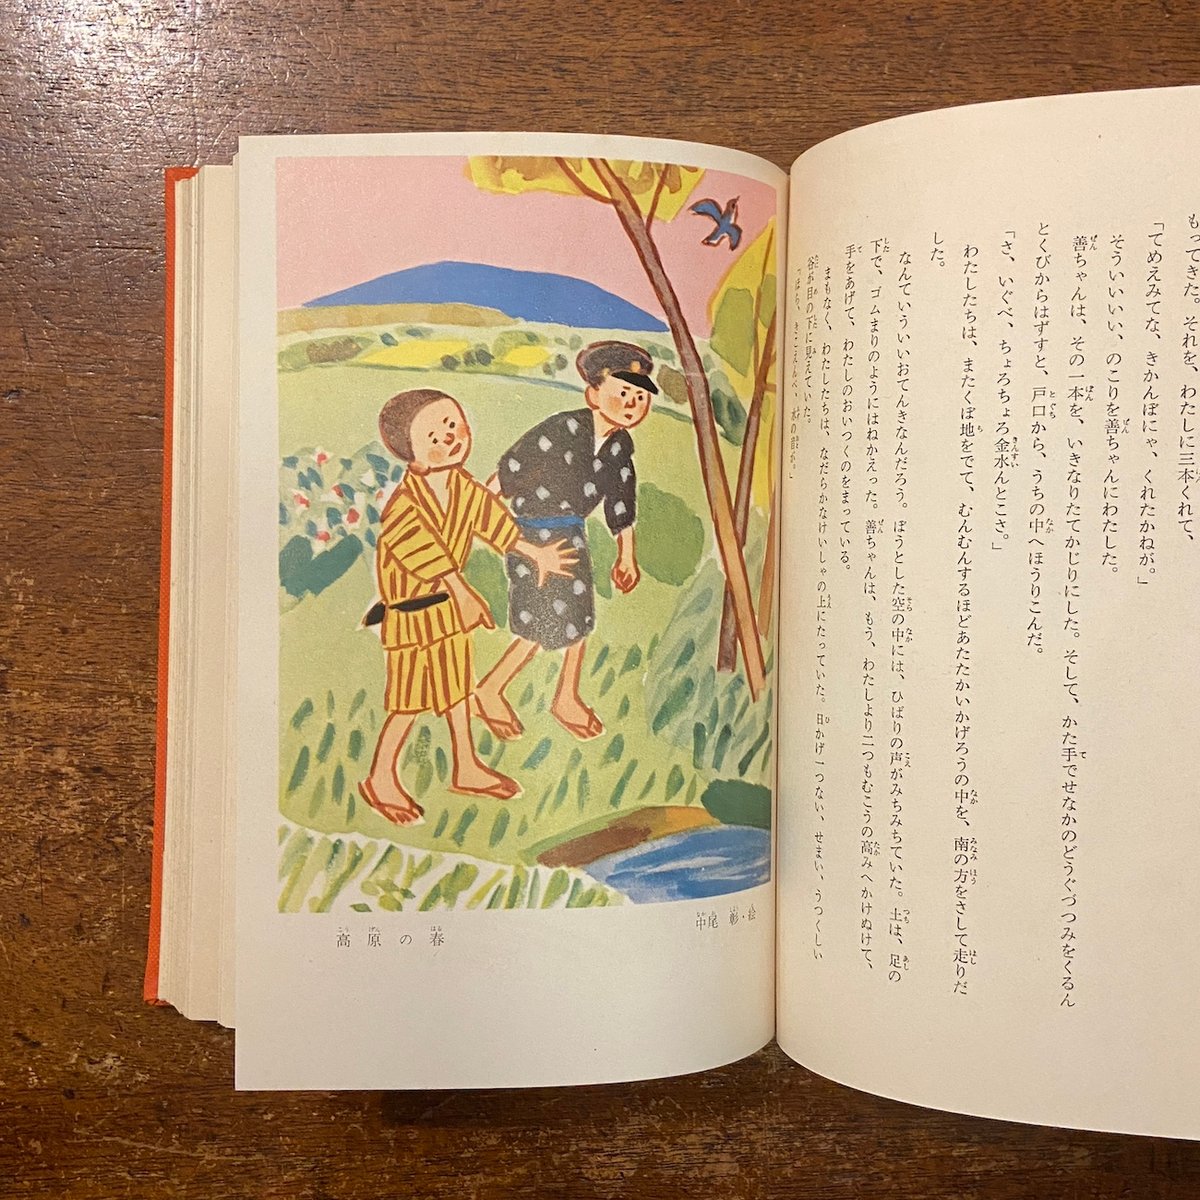 もってきた。それを、わたしに三本くれて、
「てめえみてな、きかんぼにゃ、くれたかねが。」
そういいいい、のこりを善ちゃんにわたした。
善ちゃんは、その一本を、いきなりたてかじりにした。そして、かた手でせなかのどうぐづつみをくるん
とくびからはずすと、戸口から、うちの中へほうりこんだ。
「さ、いぐべ、ちょろちょろ金水んとこさ。」
わたしたちは、またくぼ地をでて、むんむんするほどあたたかいかげろうの中を、南の方をさして走りだ
した。
なんていういいおてんきなんだろう。ぼうとした空の中には、ひばりの声がみちみちていた。土は、足の
下で、ゴムまりのようにはねかえった。善ちゃんは、もう、わたしより二つもむこうの高みへかけぬけて、
手をあげて、わたしのおいつくのをまっている。
まもなく、わたしたちは、なだらかなけいしゃの上にたっていた。日かげ一つない、せまい、うつくしい
谷が目の下に見えていた。
「ほら、きこえんべ、水の音が。」
中尾 彰・絵
高原の春